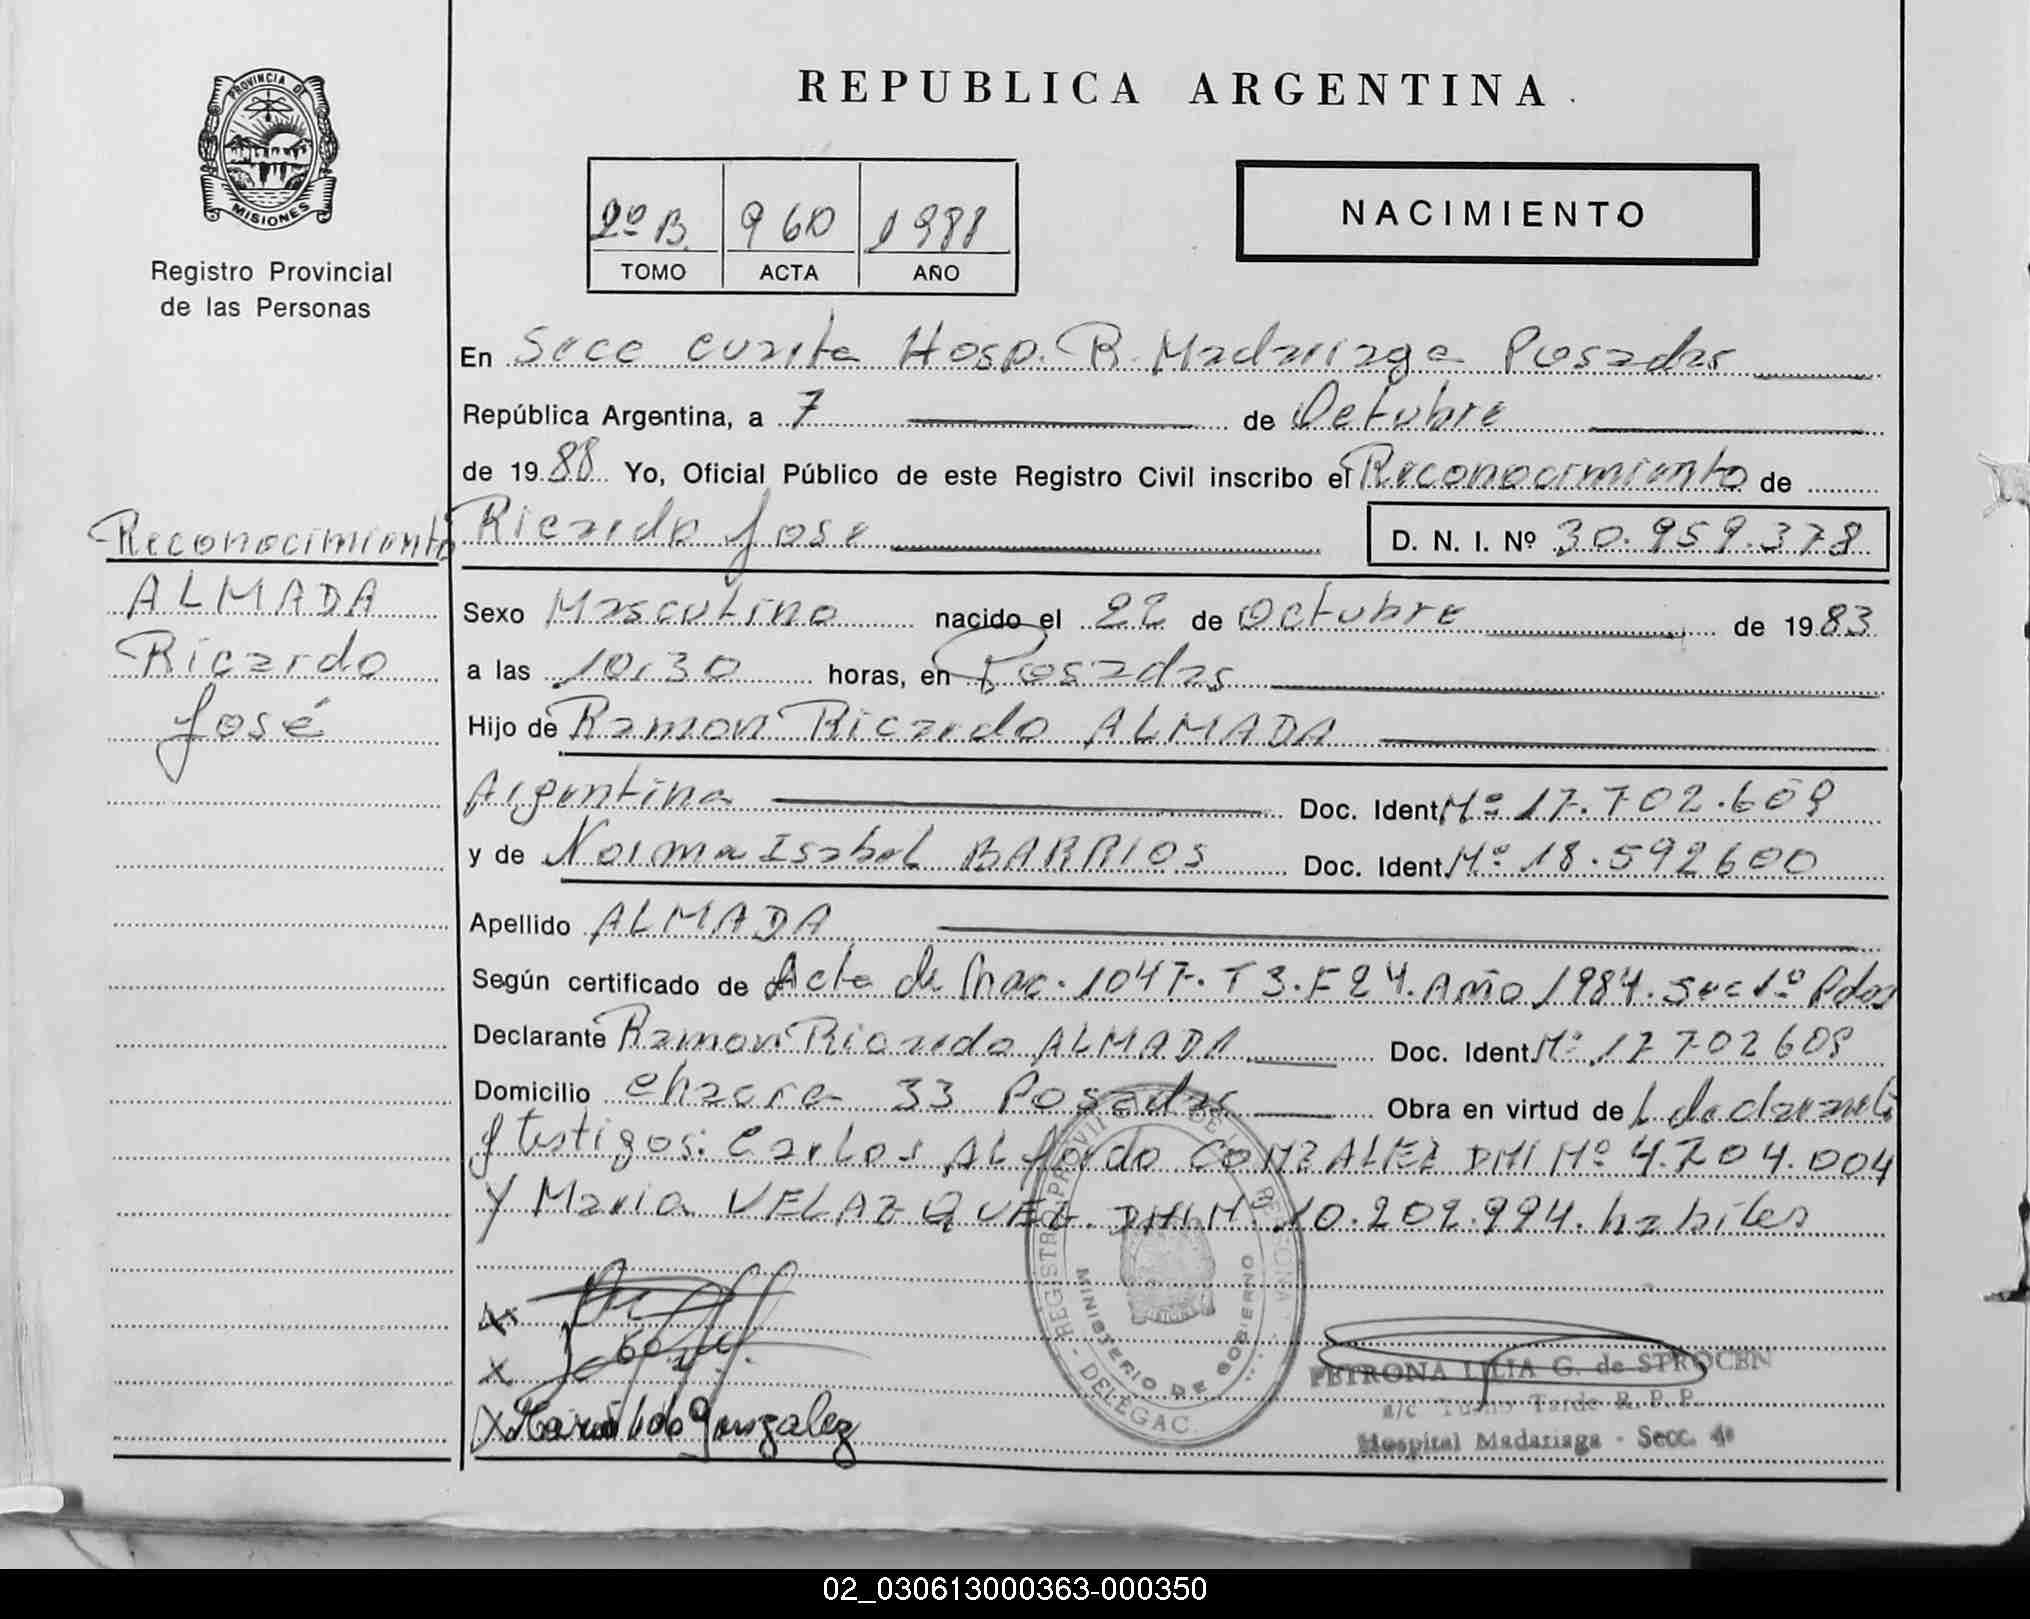 REPUBLICA ARGENTINA
PROVINCIA DE
MISIONES
Registro Provincial
de las Personas
2º B. 960 1988
TOMO ACTA AÑO
NACIMIENTO
En Secc cuarta Hosp. R. Madariaga Posadas
República Argentina, a 7 de Octubre
de 1988 Yo, Oficial Público de este Registro Civil inscribo el Reconocimiento de
Ricardo Jose D. N. I. Nº 30.959.378
Reconocimiento
ALMADA
Ricardo
José
Sexo Masculino nacido el 22 de Octubre de 1983
a las 10,30 horas, en Posadas
Hijo de Ramon Ricardo ALMADA
Argentina Doc. Ident Nº 17.702.609
y de Norma Isabel BARRIOS Doc. Ident. Nº 18.592600
Apellido ALMADA
Según certificado de Acta de Nac. 1047. T 3. F 24. Año 1984. Sec 1º Pdas
Declarante Ramon Ricardo ALMADA Doc. Ident Nº 17702609
Domicilio chacra 33 Posadas Obra en virtud de
y testigos: Carlos Alfredo GONZALEZ DNI Nº 4.704.004
y Maria VELAZQUEZ DNI N. 10.202.994. habiles
REGISTRO PROVINCIAL DE LAS PERSONAS - DELEGAC.
MINISTERIO DE GOBIERNO
X
X
X González
PETRONA LILIA G. de STROCEN
a/c Turno Tarde R. P. P.
Hospital Madariaga - Secc. 4ª
02_030613000363-000350